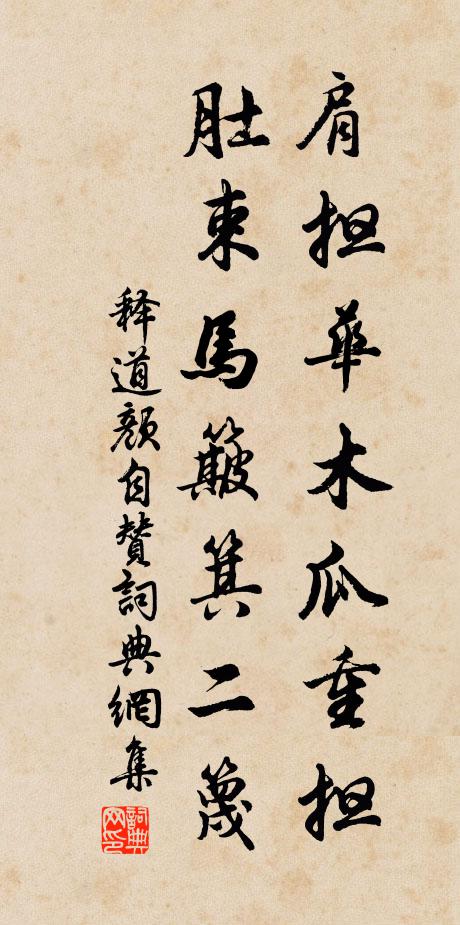 肩担華木瓜重担
肚束馬簸箕二篾
释道颜自赞詞典網集
詞典网印